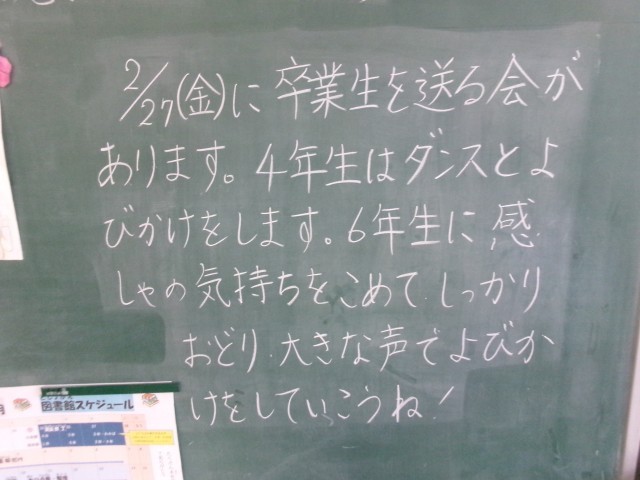 2/27(金)に卒業生を送る会が
あります。4年生はダンスとよ
びかけをします。6年生に感
しゃの気持ちをこめて、しっかり
おどり、大きな声でよびか
けをしていこうね!
図書館スケジュール